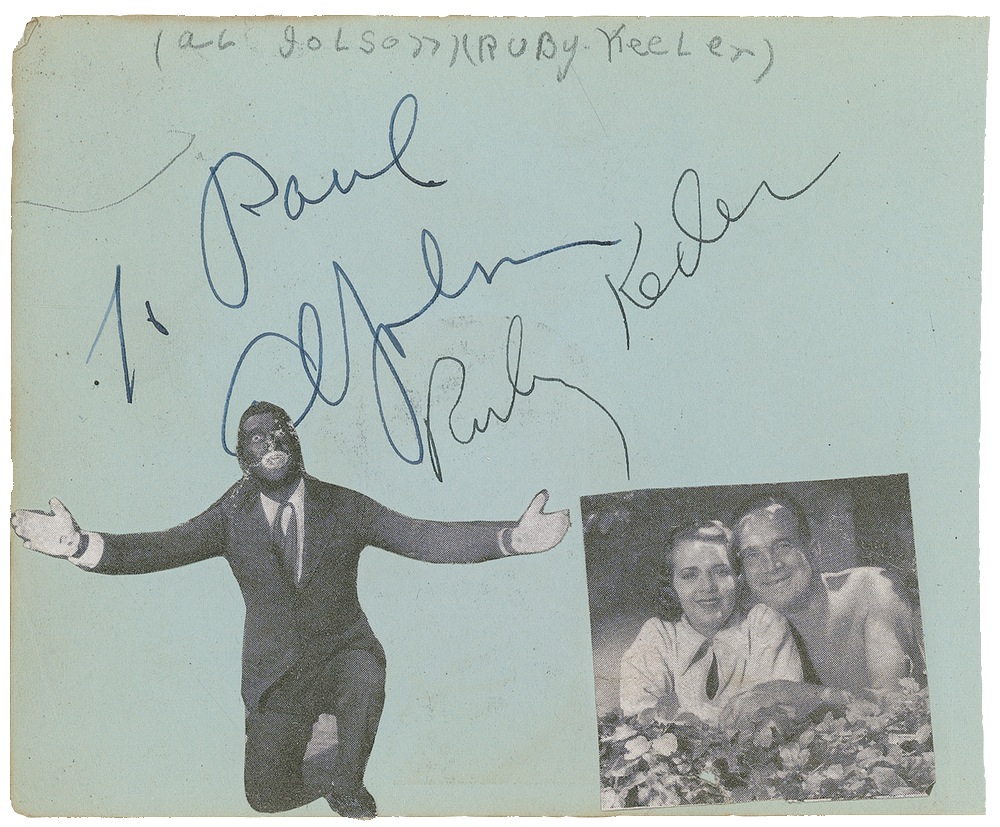 (AL JOLSON)(RUBY KEELER)
To Paul
Al Jolson
Ruby Keeler